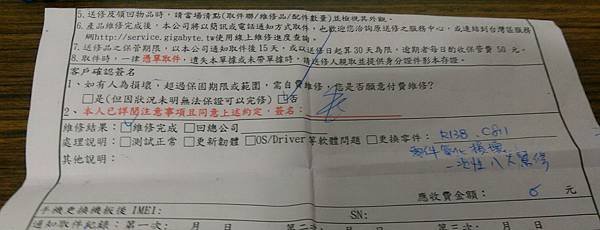 5.送修及領回物品時,請當場清點(取件聯/維修品/配件數量)並檢視其外觀。
6.產品維修完成後,本公司將以簡訊或電話通知方式取件,也歡迎您洽詢原送修之服務中心,或連結到台灣區服務
網http://service.gigabyte.tw使用線上維修進度查詢。
7.送修品之保管期限,以本公司通知取件後15天,或以送修日起算30天為限,逾期者每日酌收保管費 50 元。
8.取件時,一律憑單取件,遺失本單據或未帶單據時,請送修人親取並提供身分證件影本存證。
客戶確認簽名
1、如有人為損壞、超過保固期限或範圍,需自費維修,您是否願意付費維修?
□是(但因狀況未明無法保證可以完修) □否
2、本人已詳閱注意事項且同意上述約定,簽名:
維修結果:□維修完成 □回總公司
處理說明:□測試正常 □更新韌體 □OS/Driver等軟體問題 □更換零件: R138、C811
零件氧化損壞
其他說明:
一次性
應收費金額: 0 元
手機更換機板後IMEI: SN:
通知取件紀錄:第一次: 月 日 第二次: 月 日 第三次: 月 日